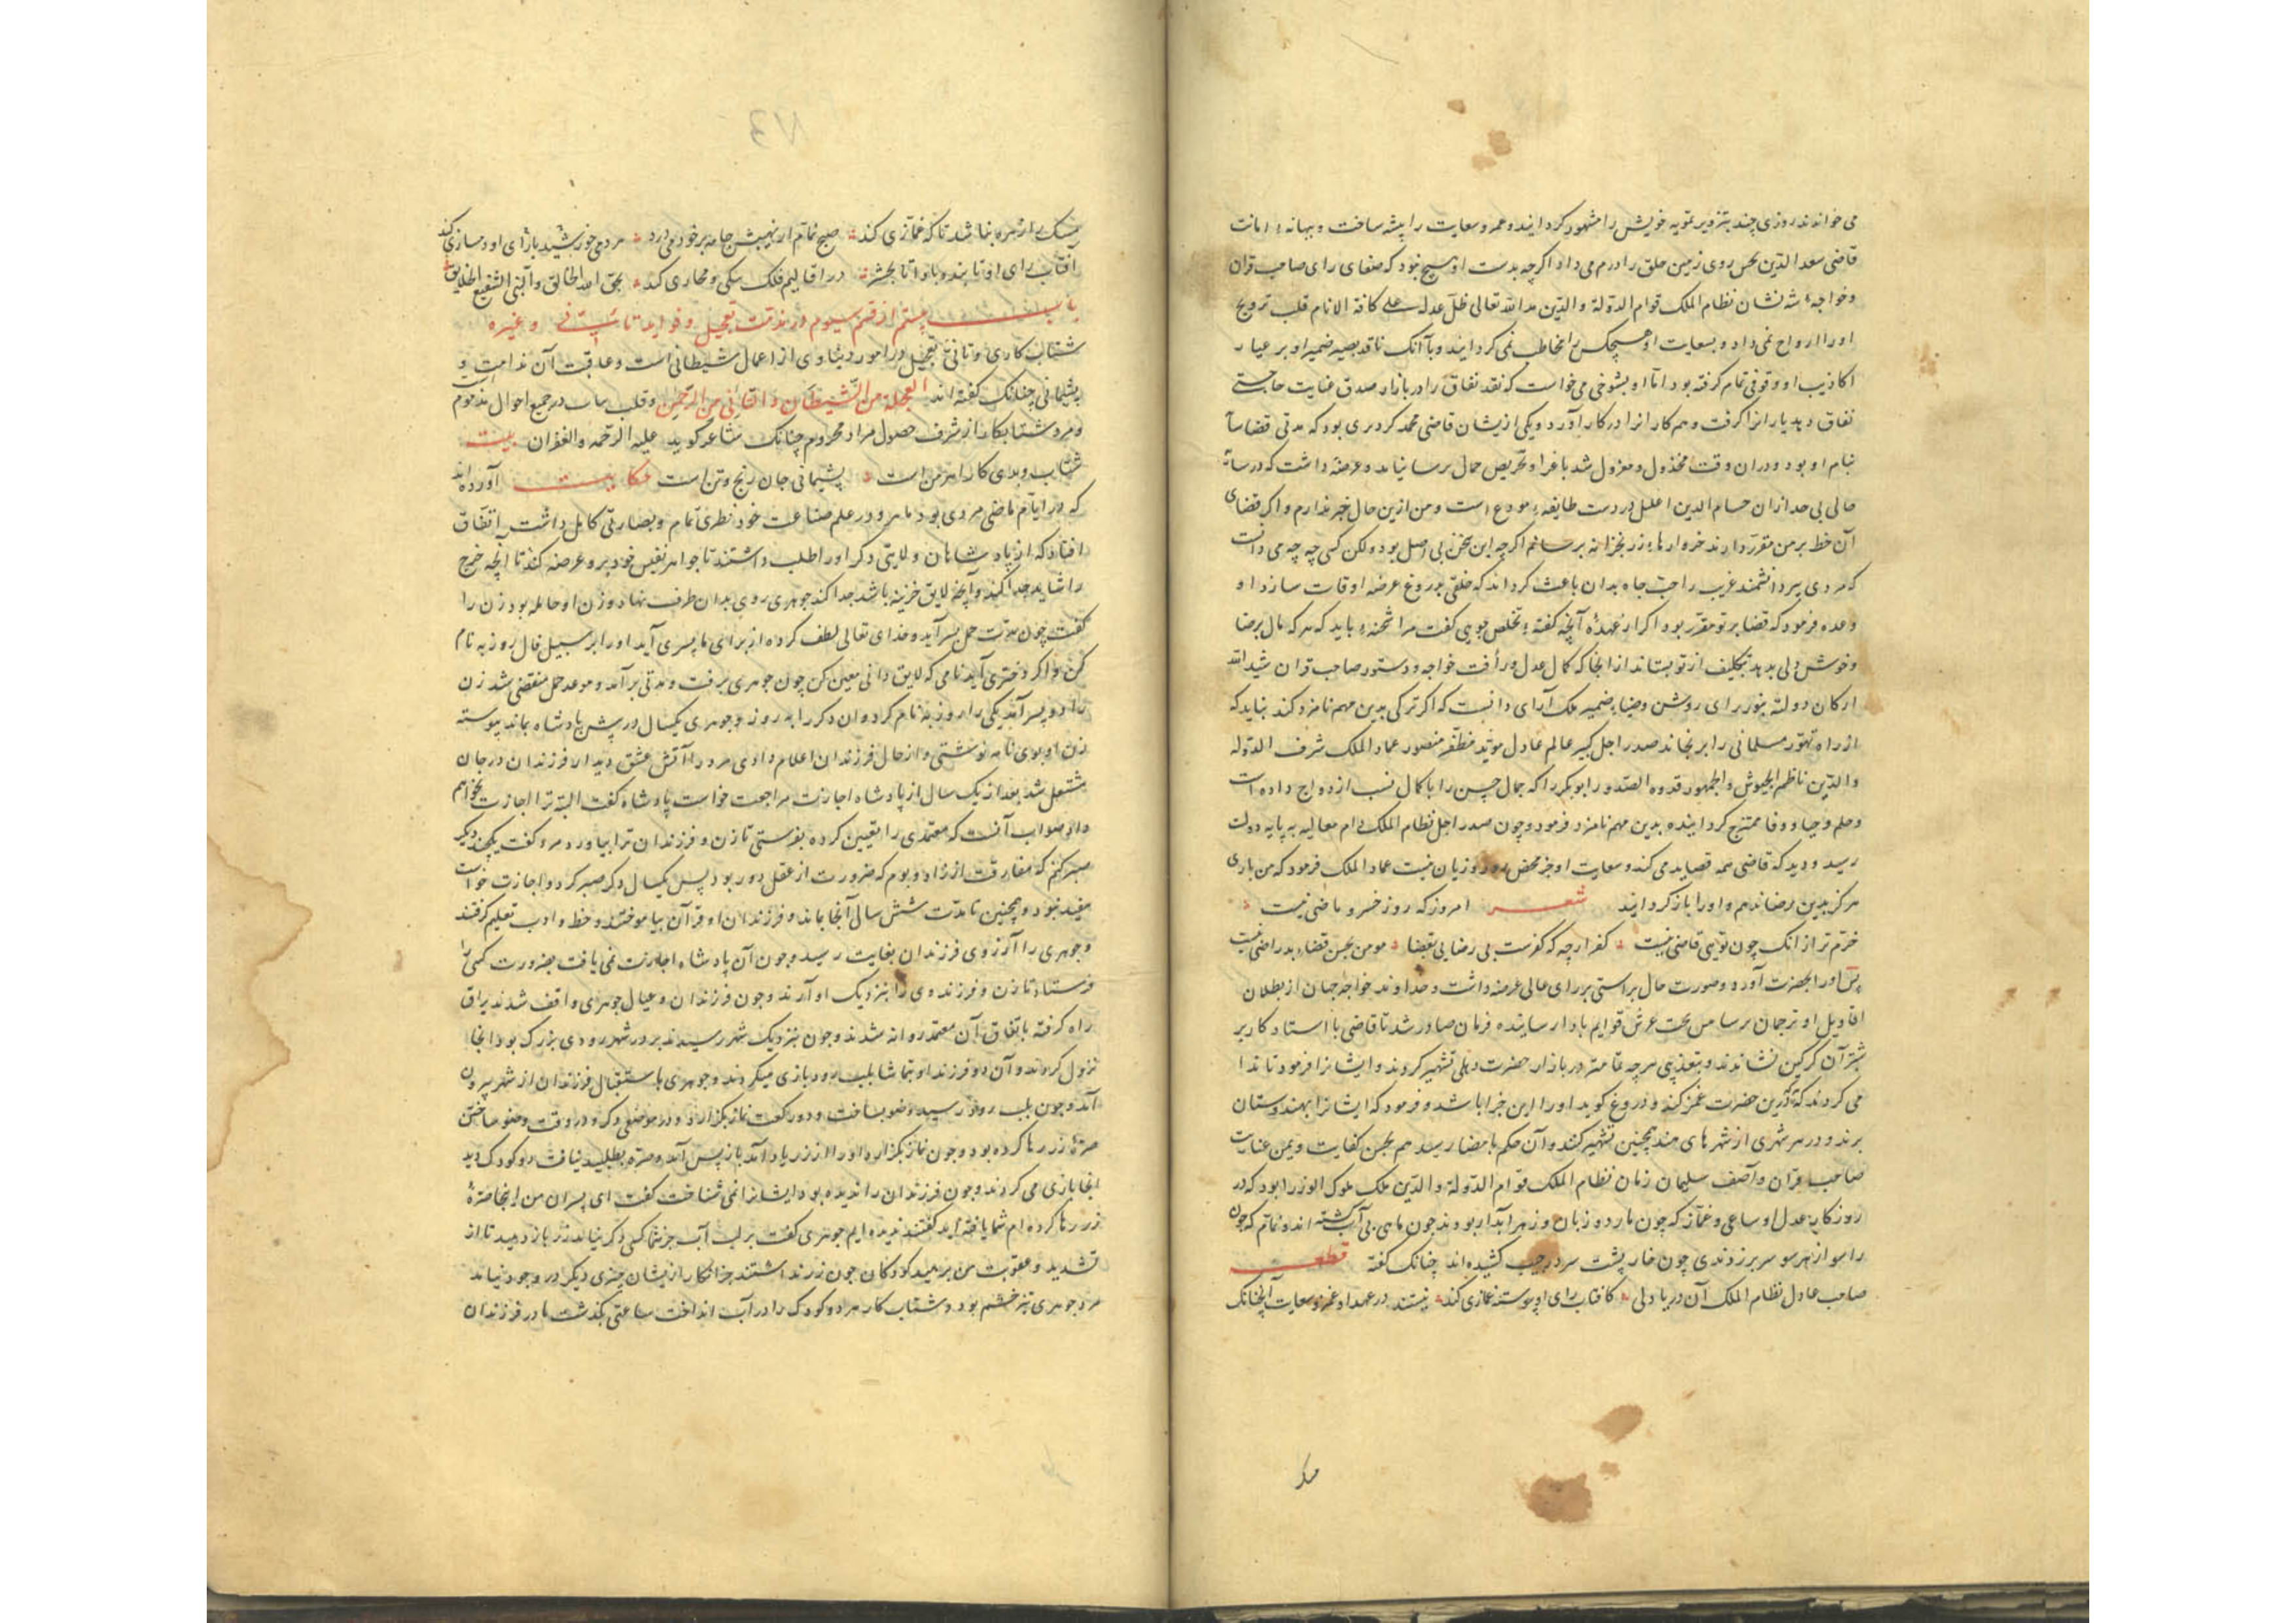 می خواندند روزی چند بتزویر تمویه خویش را مشهور کردایند و غمز و سعایت را پیشه ساخت و ببهانهٔ امانت
قاضی سعد الدین بحس روی زمین خلق را درم می داد اگرچه بدست او هیچ نبود که صفای رای صاحب قران
و خواجهٔ شه نشان نظام الملک قوام الدوله والدین مد الله تعالی ظل عدله علی کافة الانام قلب ترویج
او را رواج نمی داد و بسعایت او هیچکس را مخاطب نمی کردایند و با آنک ناقد بصیر ضمیر او بر عیار
اکاذیب او وقوفی تمام گرفته بود اما او بشوخی می خواست که نقد نفاق را در بازار صدق عنایت حاجتی
نفاق دهد یارانرا گرفت و همکارانرا در کار آورد و یکی ازیشان قاضی محمد کردری بود که مدتی قضا
بنام او بود و دران وقت مخذول و معزول شد باغرا و تحریص حمال برسانیاند و عرضه داشت که
مالی بی حد ازان حسام الدین اعلبل در دست طایفهٔ مودع است و من ازین حال خبر ندارم و اگر قضای
آن خط بر من مقرر دارند خروارها زر بخزانه برسانم اگرچه این سخن بی اصل بود ولکن کسی چه چه می دانست
که مردی پیر دانشمند غریب را حب جاه بدان باعث کرداند که خلقی بدروغ عرضه اوقات سازد او
وعده فرمود که قضا بر تو مقرر بود اگر از عهدهٔ آنچه گفتهٔ تخلص جویی گفت مرا شحنهٔ باید که هر که مال برضا
و خوش دلی بدهد بتکلیف از تو بستاند از انجا که کمال عدل و رأفت خواجه و دستور صاحب قران شید الله
ارکان دولته بنور رای روشن و ضیاء ضمیر ملک آرای دانست که اگر ترکی بدین مهم نامزد کند بباید که
از راه تهور مسلمانی را برنجاند صدر اجل کبیر عالم عادل موید مظفر منصور عماد الملک شرف الدوله
والدین ناظم الجیوش والجمهور قدوه الصدور ابوبکر را که جمال حسن را با کمال نسب ازدواج داده است
و حلم و حیا و وفا ممتزج کردانیده بدین مهم نامزد فرمود و چون صدر اجل نظام الملک دام معالیه به پایه دولت
رسید و دید که قاضی همه قصاید می کند و سعایت او جز محض زور و زیان نیست عماد الملک فرمود که من باری
هرگز بدین رضا ندهم و او را باز کردایند شعر امروز که روز خسرو ماضی نیست
خرم تر از انک چون تویی قاضی نیست کفر ارچه که کفرست بی رضایی بقضا مومن بچنین قضاء بد راضی نیست
پس او را بحضرت آورد و صورت حال براستی بر رای عالی عرضه داشت و خداوند خواجه جهان از بطلان
اقاویل او ترجمان بر سامی تحت عرش قوایم بادا رسانیده فرمان صادر شد تا قاضی با استاد کار بر
شتر آن گرگین نشاندند و بتعذیبی هرچه تمامتر در بازار حضرت دهلی تشهیر کردند و ایشانرا فرمود تا ندا
می کردند که هر که درین حضرت غمز کند و دروغ گوید او را این جزا باشد و فرمود که ایشانرا بهندوستان
برند و در هر شهری از شهرهای هند همچنین تشهیر کنند و آن حکم بامضا رسید هم بحسن کفایت و یمن عنایت
صاحب قران و آصف سلیمان زمان نظام الملک قوام الدولة والدین ملک ملوک الوزرا بود که در
روزگار عدل او ساعی و غماز که چون مار دو زبان و زهر آبدار بودند چون ماهی بی آب گشته اند و نمام که چون
راسو از هر سو سر برزدندی چون خارپشت سر در جیب کشیده اند چنانک گفته قطعه
صاحب عادل نظام الملک آن دریا دلی کافتاب رای او پیوسته غمازی کند نیستند در عهد او غمز و سعایت آنچنانک
مشک را زهره نباشد تا که غمازی کند صبح نمام از نهیبش جامه بر خود می درد مردمی خورشید بارای او دمسازی کند
آفتاب رای او تا بند و باد تا بحشر در اقالیم فلک سکی و مجازی کند بحق الله الخالق والنبی الشفیع الخلایق
باب بیستم از قسم سیوم در مذمت تعجیل و فواید تا بینی و غیره
شتاب کاری و تأنی تعجیل در امور دنیاوی از اعمال شیطانی است و عاقبت آن ندامت و
پشیمانی چنانک گفته اند العجلة من الشیطان والتأنی من الرحمن وقلب سات در جمیع احوال مذموم
و مرد شتابکار از شرف حصول مراد محروم چنانک شاعر گوید علیه الرحمه والغفران بیت
شتاب و بدی کار اهرمن است پشیمانی جان رنج و تن است حکایت آورده اند
که در ایام ماضی مردی بود ماهر و در علم صناعت خود نظری تمام و بصارتی کامل داشت اتفاق
افتاد که از پادشاهان ولایتی دگر او را طلب داشتند تا جواهر نفیس خود برو عرضه کند تا آنچه خرج
را شاید جدا کند و آنچه لایق خزینه باشد جدا کند جوهری روی بدان طرف نهاد و زن او حامله بود زن را
گفت چون مدت حمل بسر آید و خدای تعالی لطف کرده از برای ما پسری آید او را بر سبیل فال روزبه نام
کن و اگر دختری آید نامی که لایق دانی معین کن چون جوهری برفت و مدتی برآمد و موعد حمل منقضی شد زن
را دو پسر آمد یکی را روزبه نام کرد و آن دگر را به روز و جوهری یکسال در پیش پادشاه بماند پیوسته
زن او بوی نامه نوشتی و از حال فرزندان اعلام دادی مرد را آتش عشق دیدار فرزندان در جان
مشتعل شد بعد از یک سال از پادشاه اجازت مراجعت خواست پادشاه گفت البته ترا اجازت نخواهم
داد صواب آنست که معتمدی را تعیین کرده بفرستی تا زن و فرزندان ترا بیاورد مرد گفت یکچند دیگر
صبر کنم که مفارقت از زاد و بوم که ضرورت از عقل دور بود پس یکسال دگر صبر کرد و اجازت خواست
مفید نبود و همچنین تا مدت شش سال آنجا بماند و فرزندان او قرآن بیاموختند و خط و ادب تعلیم گرفتند
و جوهری را آرزوی فرزندان بغایت رسید و چون آن پادشاه اجازت نمی یافت بضرورت کسی را
فرستاد تا زن و فرزند وی را بنزدیک او آرند و چون فرزندان و عیال جوهری واقف شدند یراق
راه گرفته باتفاق آن معتمد روانه شدند و چون بنزدیک شهر رسیدند بر در شهر رودی بزرگ بود انجا
نزول کردند و آن دو فرزند او بتماشا بلب رود بازی میکردند و جوهری باستقبال فرزندان از شهر بیرون
آمد و چون بلب رود رسید وضو بساخت و دو رکعت نماز بگزارد و در موضعی دگر و در وقت وضو ساختن
صرهٔ زر رها کرده بود و چون نماز بگزارد او را از زر یاد آمد باز پس آمد و صره بطلبید نیافت دو کودک دید
انجا بازی می کردند و چون فرزندان را ندیده بود ایشانرا نمی شناخت گفت ای پسران من اینجا صرهٔ
زر رها کرده ام شما یافته اید گفتند ندیده ایم جوهری گفت بر لب آب جز شما کسی دگر نیامد زر باز دهید تا از
تشدید و عقوبت من برهید کودکان چون زر نداشتند جز انکار ازیشان چیزی دیگر در وجود نیامد
مرد جوهری تیز خشم بود و شتاب کار هر دو کودک را در آب انداخت ساعتی بگذشت مادر فرزندان